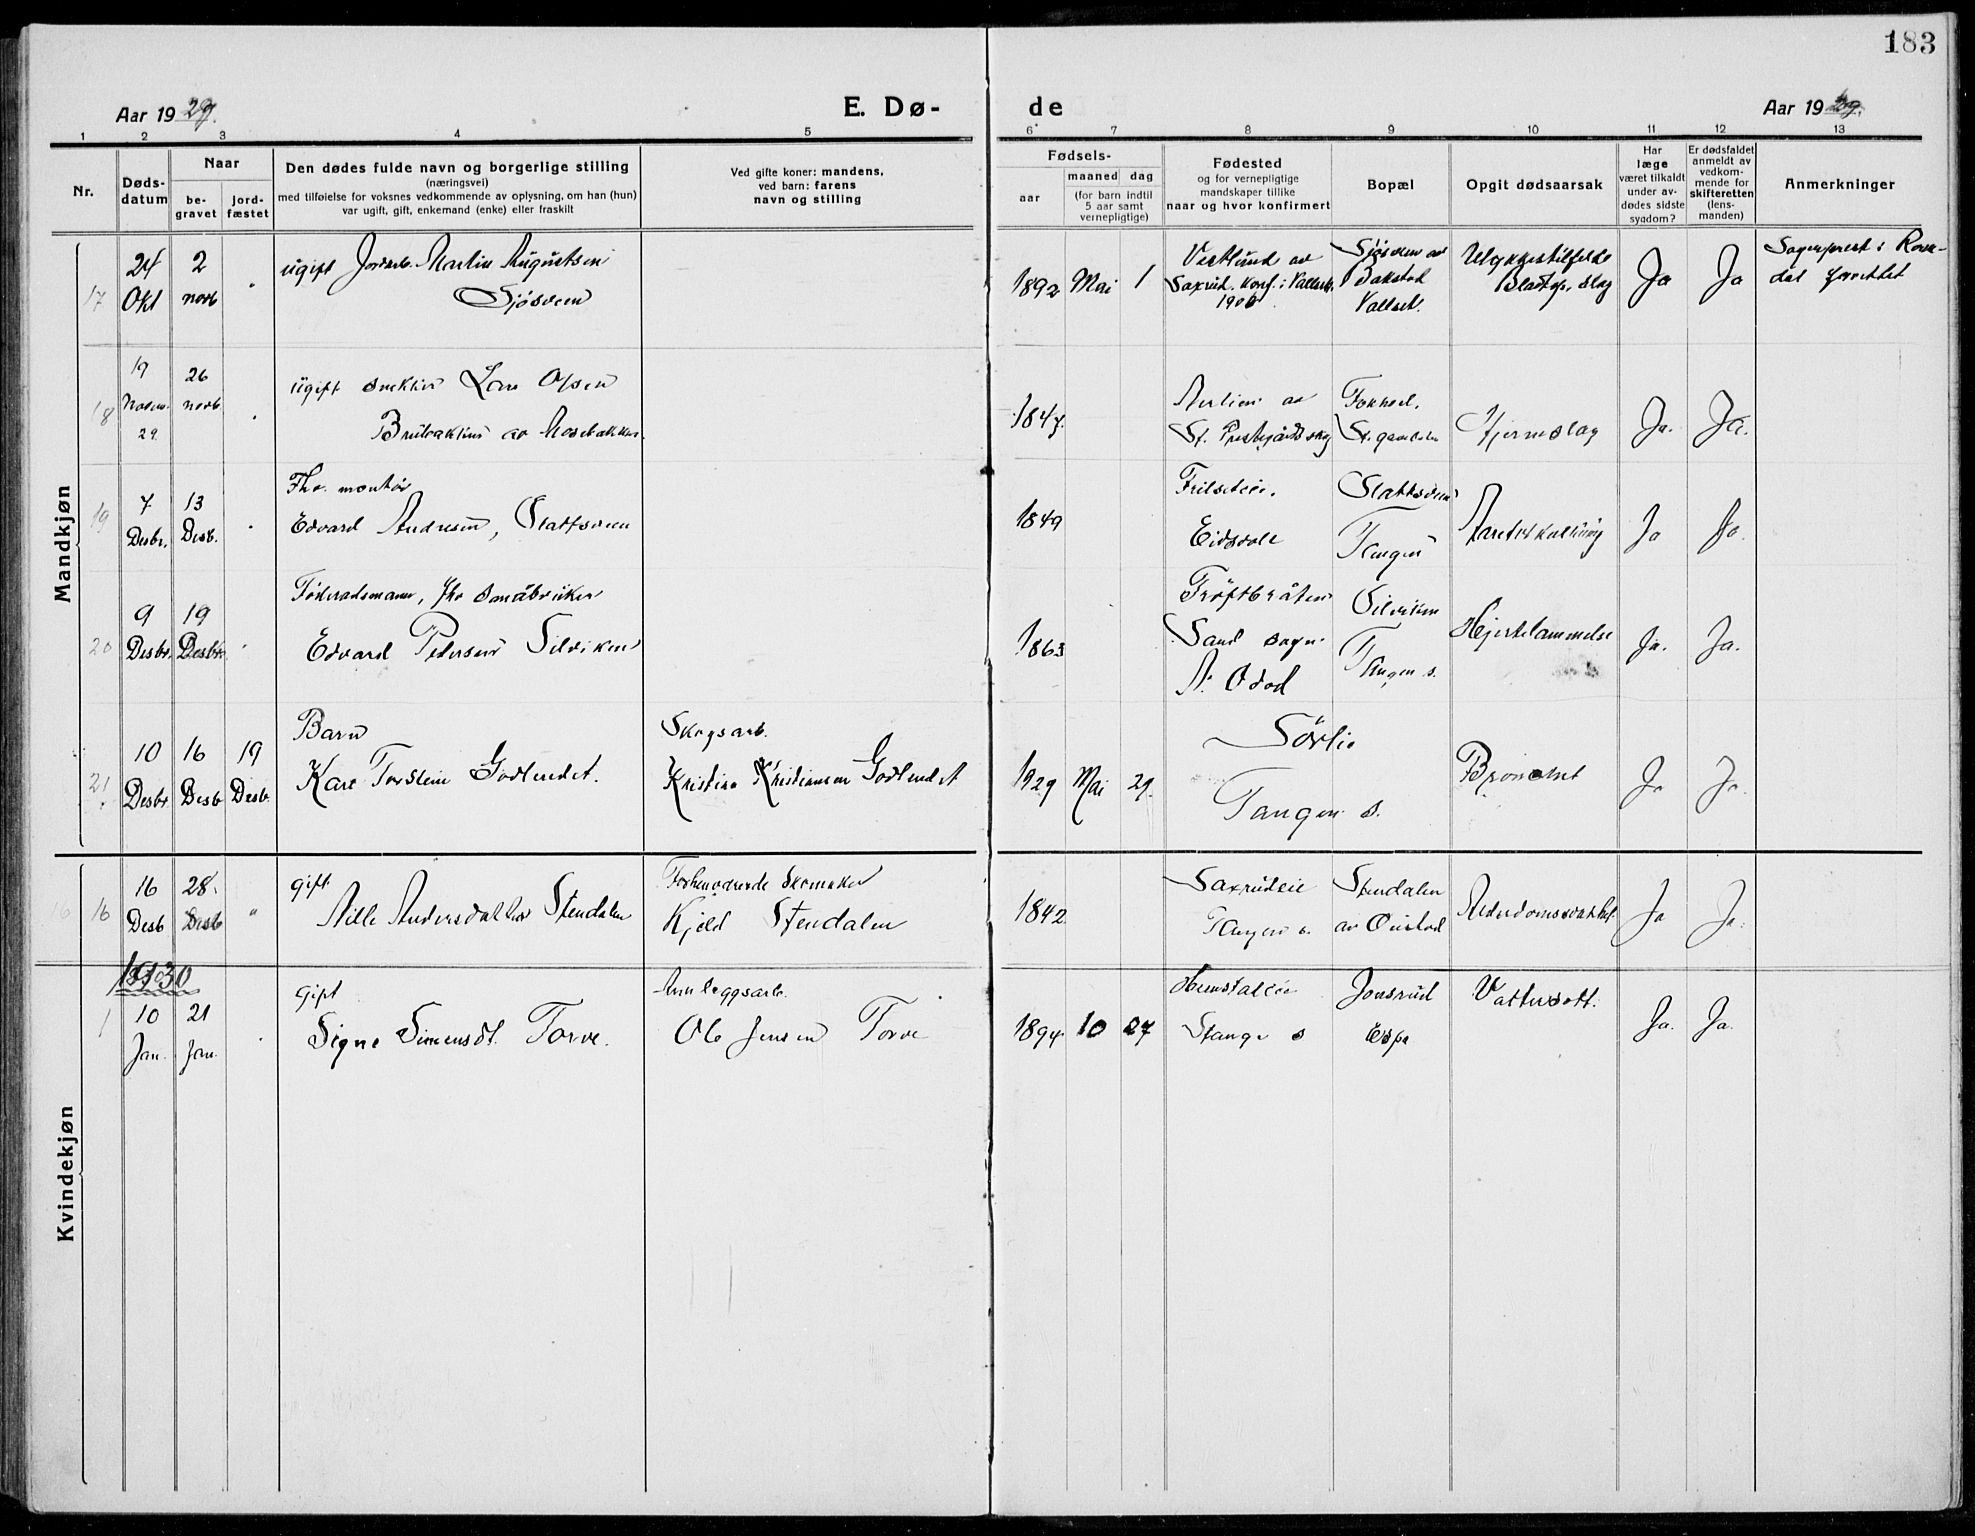 183
Aar 19 29.
E. Dø-
de
Aar 19 29.
1 2 3 4 5 6 7 8 9 10 11 12 13
Nr.
Døds-
datum
Naar
be-
gravet
jord-
fæstet
Den dødes fulde navn og borgerlige stilling
(næringsvei)
med tilføielse for voksnes vedkommende av oplysning, om han (hun)
var ugift, gift, enkemand (enke) eller fraskilt
Ved gifte koner: mandens,
ved barn: farens
navn og stilling
Fødsels-
aar
maaned
dag
(for barn indtil
5 aar samt
vernepligtige)
Fødested
og for vernepligtige
mandskaper tillike
naar og hvor konfirmert
Bopæl
Opgit dødsaarsak
Har
læge
været tilkaldt
under av-
dødes sidste
sygdom?
Er dødsfaldet
anmeldt av
vedkom-
mende for
skifteretten
(lens-
manden)
Anmerkninger
Mandkjøn
17
24
Okt
2
novb
"
ugift Jordarb. Martin Augustsen
Sjøsveen
1892 Mai 1
Vestlund av
Saxrud. Konf. i Vallset.
1906
Sjøsveen av
Bakstad
Vallset.
Ulykkestilfelde
Ja
Ja
Sogneprest i
forrettet
18
19
Novem.
29.
26
novb.
"
ugift snekker Lars Olsen
av Mosebakken.
1847.
av
St. Prestegårds skog
Hjerneslag
Ja.
Ja.
19
7
Desbr.
13
Desb.
"
Fhv. montør
Edvard Andresen, Slattsveen
1849
Frilseteie.
Eidsvoll
Slattsveen
Tangen
Aareforkalkning
Ja
Ja.
20
9
Desbr.
19
Desbr.
"
Føderadsmann, fhv småbruker
Edvard Pedersen Silviken
1863
Trøftbråten
Sand sogn
N. Odal
Silviken
Tangen s.
Hjertelammelse
Ja.
Ja.
21
10
Desbr
16
Desb
19
Desb.
Barn
Kåre Torstein Godlundet.
Skogsarb.
Kristian Kristiansen Godlundet
1929 Mai 29.
Sørlie
Tangen s.
Ja
Ja.
Kvindekjøn
16 16
16
Desb
28.
Desb
"
gift
Nille Andersdatter Stendalen
Forhenværende Skomaker
Kjeld Stendalen
1842
Saxrudeie
Tangen s.
Stendalen
av Oustad
Alderdomssvakhet.
Ja
Ja.
1930
1
10
Jan.
21
Jan.
"
Gift
Signe Simensdt. Torve.
Annleggsarb.
Ole Jensen Torve
1894. 10 27
Hemstadeie
Stange s
Jonsrud
Espa
Vattersott.
Ja.
Ja.